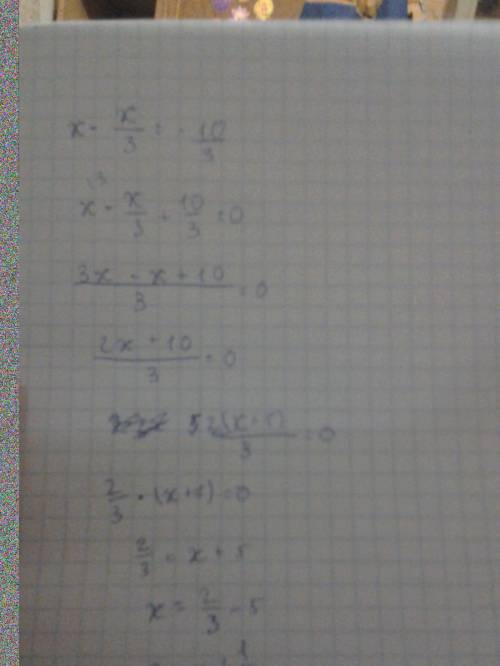 x - x/3 = - 10/3
x - x/3 + 10/3 = 0
3x - x + 10 / 3 = 0
2x + 10 / 3 = 0
2(x+5) / 3 = 0
2/3 · (x+5) = 0
2/3 = x + 5
x = 2/3 - 5